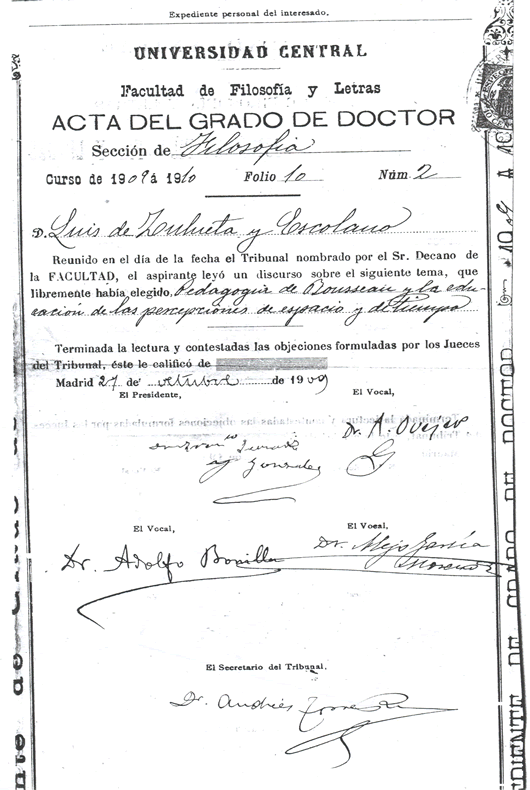 Expediente personal del interesado.
UNIVERSIDAD CENTRAL
Facultad de Filosofía y Letras
ACTA DEL GRADO DE DOCTOR
Sección de Filosofía
Curso de 1909 á 1910 Folio 10 Núm. 2
D. Luis de Zulueta y Escolano
Reunido en el día de la fecha el Tribunal nombrado por el Sr. Decano de
la FACULTAD, el aspirante leyó un discurso sobre el siguiente tema, que
libremente había elegido, Pedagogía de Rousseau y la edu-
cación de las percepciones de espacio y de tiempo
Terminada la lectura y contestadas las objeciones formuladas por los Jueces
del Tribunal, éste le calificó de
Madrid 27 de octubre de 1909
El Presidente, El Vocal,
Dr. A. Ovejero
y González
El Vocal, El Vocal,
Dr. Adolfo Bonilla Dr. Alejo García
Moreno
El Secretario del Tribunal,
Dr. Andrés
EDIENTE DE GRADO DE DOCTOR